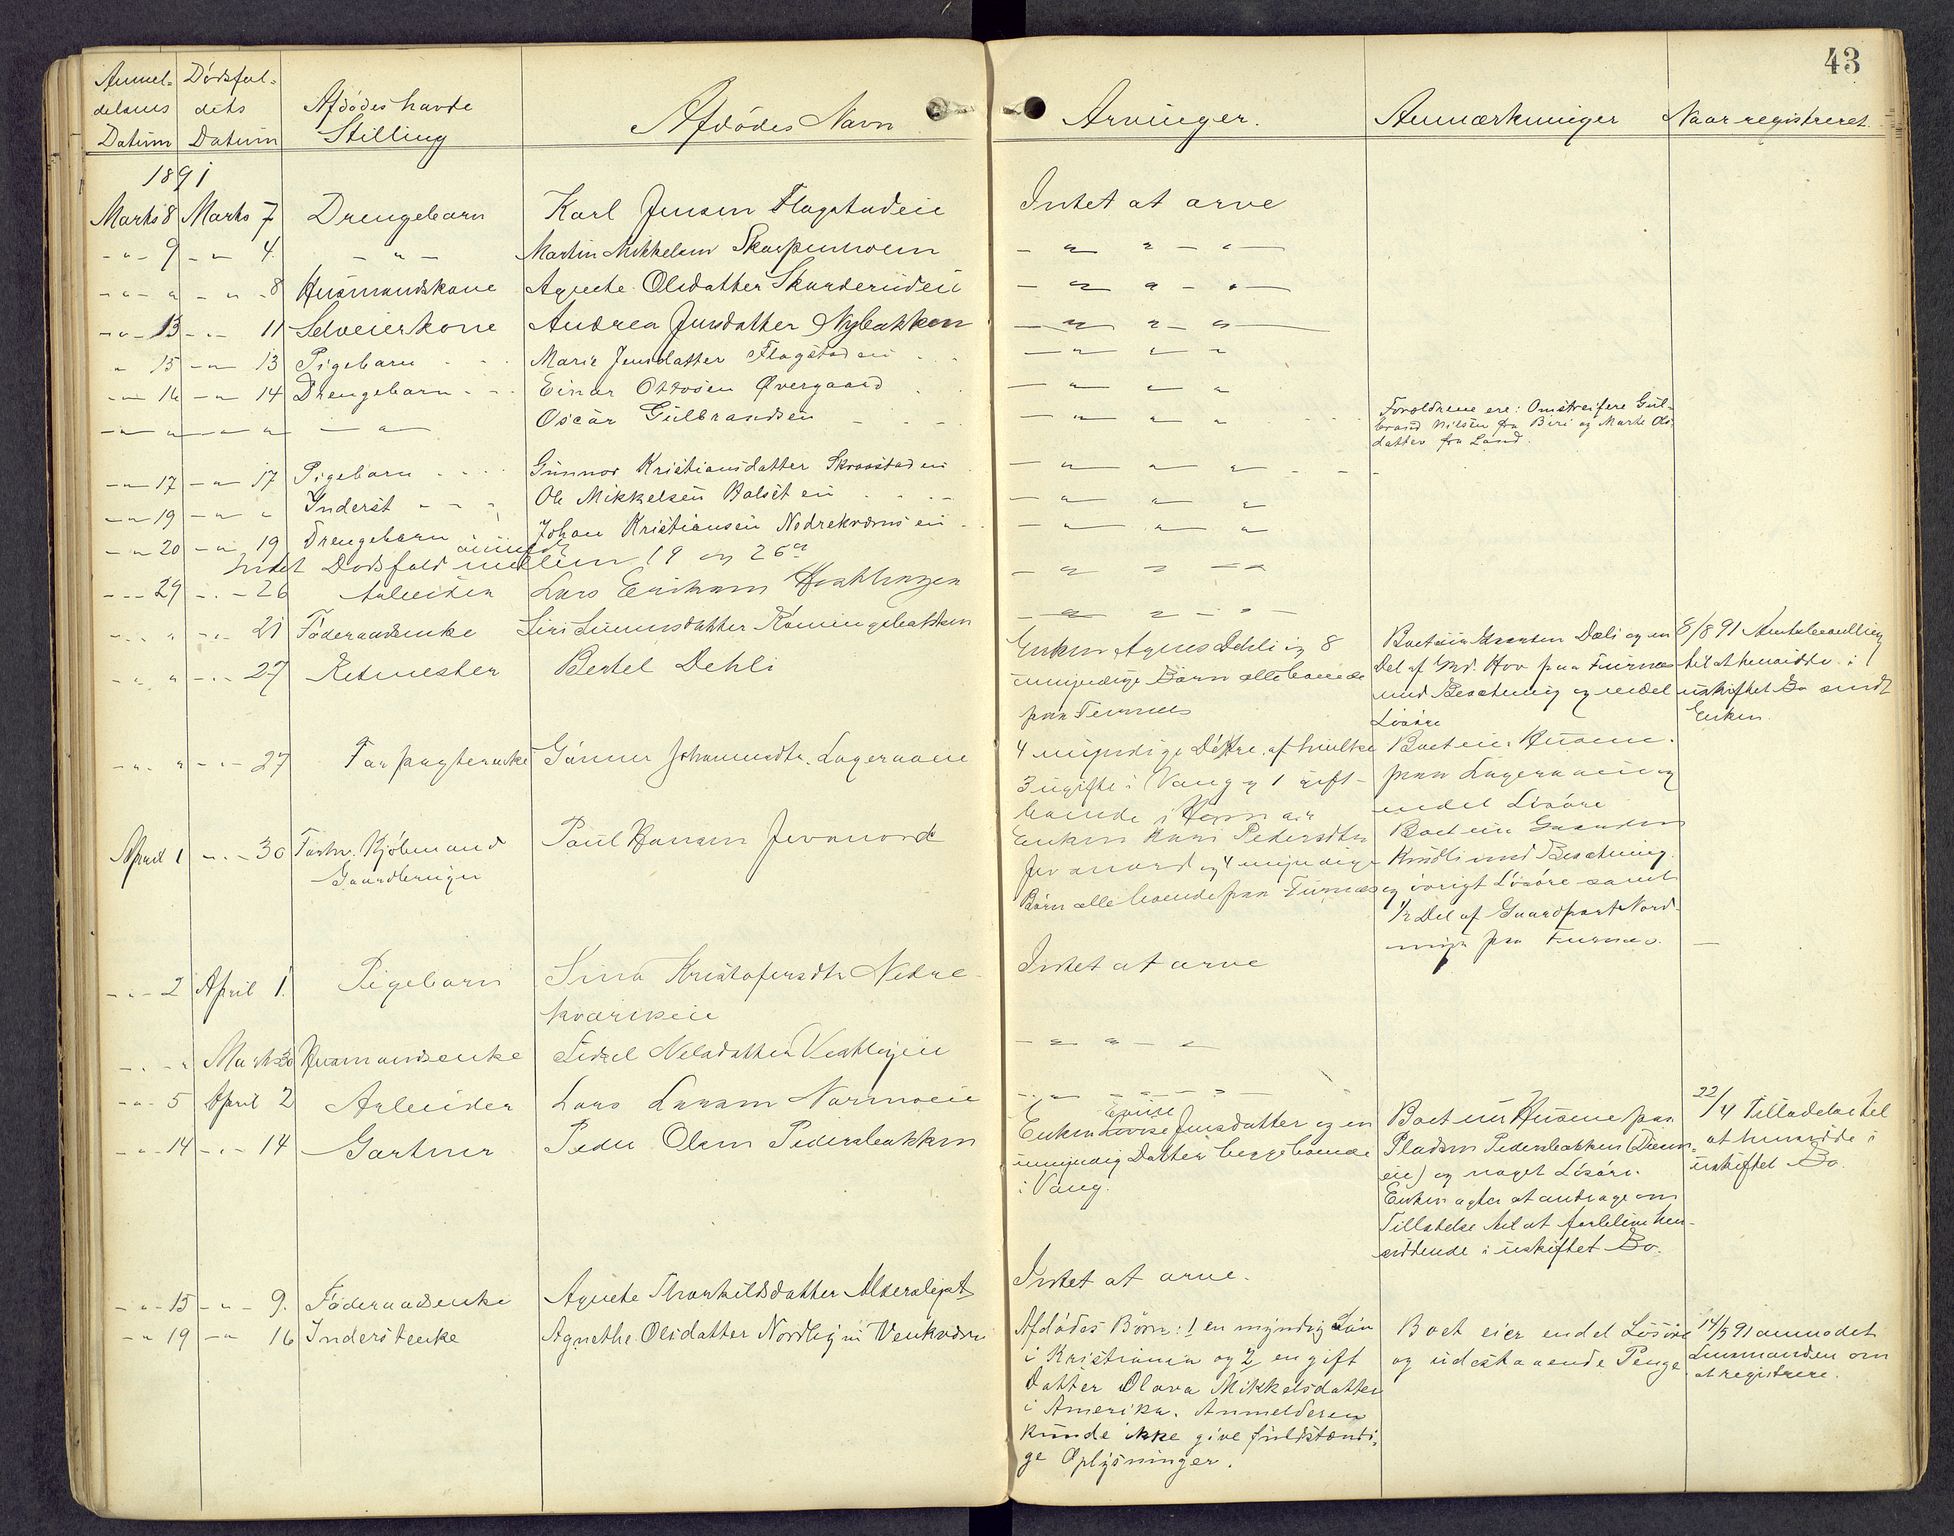 43
Anmel- Dödsfal-
delsens dets Afdödes havde
Datum Datum Stilling Afdödes Navn Arvinger. Anmærkninger Naar registreret.
1891
Marts 8 Marts 7 Drengebarn Karl Jensen Flagstadeie Intet at arve
- " - 9 - " - 4. - " - Martin Mikkelsen - " " - " -
- " - " - " - 8 Husmandskone Agnete Olsdatter Skarderudeie - " " - " -
- " - 13 - " - 11 Selveierkone Andrea Jensdatter Nybakken - " " - " -
" 15 - " - 13 Pigebarn Marie Jensdatter Flagstadeie - " " "
- " - 16 - " - 14 Drengebarn Einar Ottosen Øvergaard - " " "
- " - " - " - " - " - Oscar Gulbrandsen - " " " Forældrene ere: Omstreifere Gul-
brand Nilsen fra Biri og Marte Ols-
datter fra Land.
- " - 17 - " - 17 Pigebarn Gunnor Kristiansdatter - " " "
- " - 19 - " - " Inderst Ole Mikkelsen - " " "
- " - 20 - " - 19 Drengebarn Johan Kristiansen - " " "
Intet Dødsfald anmeldt mellem 19 og 26de
- " - 29 - " - 26 Arbeider Lars - " " - "
- " - " - " - 21 Föderaadsenke Siri - " " - " -
- " - " - " - 27 Retmester Bertel Dehli Enken Agnes Dehli og 8
umyndige Börn alle boende
paa Furnes
Boet eier Gaarden Dæli og en
Del af Grd. Hov paa Furnes
med Besætning og endel
Lösöre
8/8 91 Amtsbevilling
til at hensidde i
uskiftet Bo sendt
Enken.
- " - " - " - 27 Forpagterenke Gunner Johannesdtr. Lageraaeie 4 myndige Döttre, af hvilke
3 ugifte i Vang og 1 gift
boende i
Boet eier Husene
paa Lageraaeie og
endel Lösöre
April 1 - " - 30 Forhv. Kjöbmand
Gaardbruger Paul Hansen Jevanord Enken Kari Pedersdtr.
Jevanord og 4 myndige
Börn alle boende paa Furnes
Boet eier Gaarden
med Besætning
og övrigt Lösöre samt
1/2 Del af Gaardpart Nord-
paa Furnes.
- " - 2 April 1. Pigebarn Lina Kristofersdtr Nedre-
kværneie Intet at arve
- " - " Marts 30 Husmandsenke Sidsel Nelsdatter - " " - "
- " - 5 April 2 Arbeider Lars Larsen - " " - " -
- " - 14 - " - 14 Gartner Peder Olsen Pedersbakken Enken Lovise Jensdatter og en
umyndig Datter begge boende
i Vang.
Boet eier Husene paa
Pladsen Pedersbakken
eie) og noget Lösöre.
Enken agter at andrage om
Tilladelse til at forblive hen-
siddende i uskiftet Bo.
22/4 Tilladelse til
at hensidde i
uskiftet Bo.
- " - 15 - " - 9. Föderaadsenke Agnete Thorkildsdatter Intet at arve.
- " 19 - " 16 Inderstenke Agnethe Olsdatter Afdödes Börn: 1 en myndig Sön
i Kristiania og 2 en gift
Datter Olava Mikkelsdatter
i Amerika. Anmelderen
kunde ikke give fuldstændi-
ge Oplysninger.
Boet eier endel Lösöre
og udestaaende Penge
14/5 91 anmodet
Lensmanden om
at registrere.